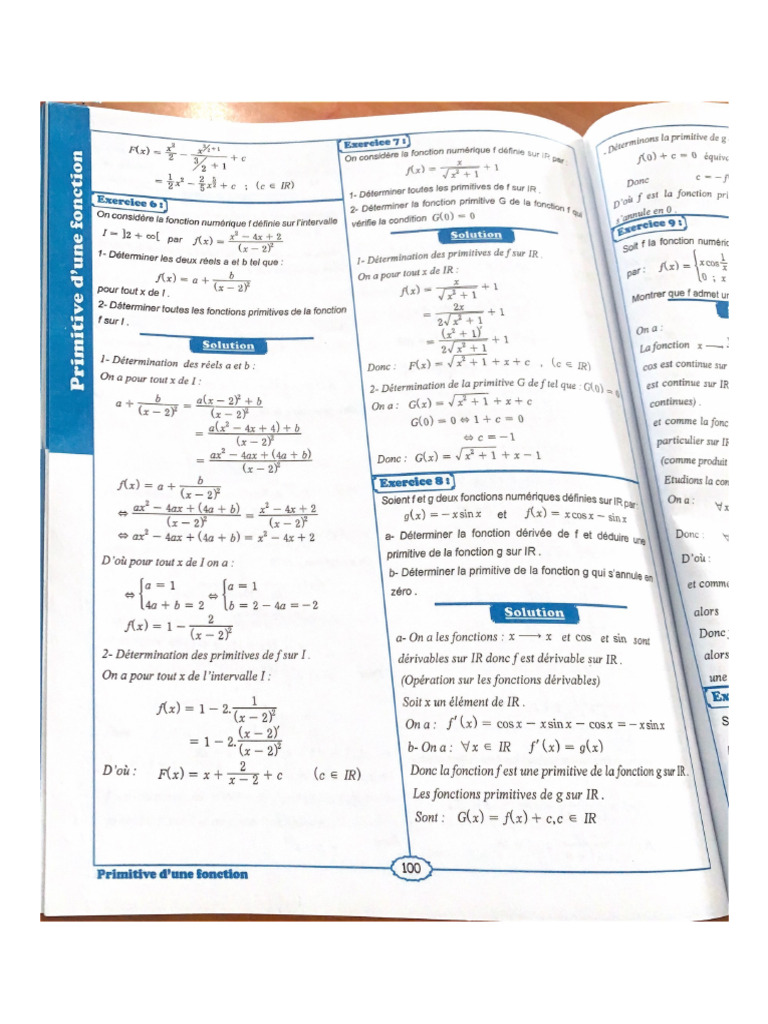 Primitive d'une fonction
F(x) = x²/2 − x^(3/2+1)/(3/2 + 1) + c
= 1/2 x² − 2/5 x^(5/2) + c ; (c ∈ IR)
Exercice 6 :
On considère la fonction numérique f définie sur l'intervalle
I = ]2 + ∞[ par f(x) = (x² − 4x + 2)/(x − 2)²
1- Déterminer les deux réels a et b tel que :
f(x) = a + b/(x − 2)²
pour tout x de I .
2- Déterminer toutes les fonctions primitives de la fonction
f sur I .
Solution
1- Détermination des réels a et b :
On a pour tout x de I :
a + b/(x − 2)² = (a(x − 2)² + b)/(x − 2)²
= (a(x² − 4x + 4) + b)/(x − 2)²
= (ax² − 4ax + (4a + b))/(x − 2)²
f(x) = a + b/(x − 2)²
⇔ (ax² − 4ax + (4a + b))/(x − 2)² = (x² − 4x + 2)/(x − 2)²
⇔ ax² − 4ax + (4a + b) = x² − 4x + 2
D'où pour tout x de I on a :
⇔ { a = 1 ⇔ { a = 1
4a + b = 2 b = 2 − 4a = −2
f(x) = 1 − 2/(x − 2)²
2- Détermination des primitives de f sur I .
On a pour tout x de l'intervalle I :
f(x) = 1 − 2. 1/(x − 2)²
= 1 − 2. (x − 2)'/(x − 2)²
D'où : F(x) = x + 2/(x − 2) + c (c ∈ IR)
Exercice 7 :
On considère la fonction numérique f définie sur IR par :
f(x) = x/√(x² + 1) + 1
1- Déterminer toutes les primitives de f sur IR .
2- Déterminer la fonction primitive G de la fonction f qui
vérifie la condition G(0) = 0
Solution
1- Détermination des primitives de f sur IR .
On a pour tout x de IR :
f(x) = x/√(x² + 1) + 1
= 2x/(2√(x² + 1)) + 1
= (x² + 1)'/(2√(x² + 1)) + 1
Donc : F(x) = √(x² + 1) + x + c , (c ∈ IR)
2- Détermination de la primitive G de f tel que : G(0) = 0
On a : G(x) = √(x² + 1) + x + c
G(0) = 0 ⇔ 1 + c = 0
⇔ c = −1
Donc : G(x) = √(x² + 1) + x − 1
Exercice 8 :
Soient f et g deux fonctions numériques définies sur IR par:
g(x) = − x sin x et f(x) = x cos x − sin x
a- Déterminer la fonction dérivée de f et déduire une
primitive de la fonction g sur IR .
b- Déterminer la primitive de la fonction g qui s'annule en
zéro .
Solution
a- On a les fonctions : x ⟶ x et cos et sin sont
dérivables sur IR donc f est dérivable sur IR .
(Opération sur les fonctions dérivables)
Soit x un élément de IR .
On a : f'(x) = cos x − x sin x − cos x = − x sin x
b- On a : ∀x ∈ IR f'(x) = g(x)
Donc la fonction f est une primitive de la fonction g sur IR.
Les fonctions primitives de g sur IR .
Sont : G(x) = f(x) + c, c ∈ IR
Déterminons la primitive de g
f(0) + c = 0
Donc c = −
D'où f est la fonction
s'annule en 0 .
Exercice 9 :
Soit f la fonction
par : f(x) = { x cos 1/x
0 ; x
Montrer que f admet
On a :
La fonction x
cos est continue sur
est continue sur IR
continues) .
et comme la
particulier sur
(comme produit
Etudions la
On a : ∀x
Donc :
D'où :
et
alors
Donc
alors
une
Primitive d'une fonction
100